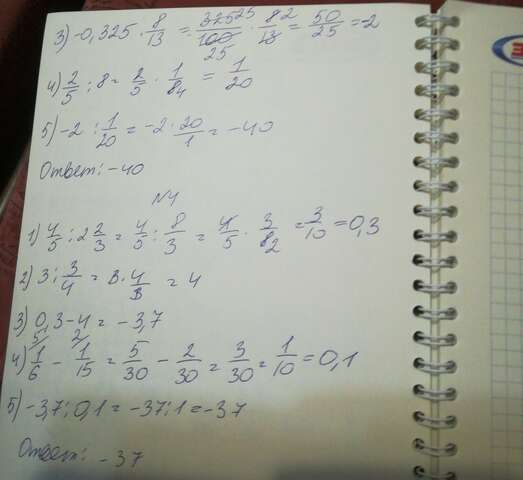 3) -0,325 · 8/13 = 325 25/100 25 · 8 2/13 = 50/25 = -2
4) 2/5 : 8 = 2/5 · 1/8 4 = 1/20
5) -2 : 1/20 = -2 · 20/1 = -40
Ответ: -40
№4
1) 4/5 : 2 2/3 = 4/5 : 8/3 = 4/5 · 3/8 2 = 3/10 = 0,3
2) 3 : 3/4 = 3 · 4/3 = 4
3) 0,3 - 4 = -3,7
4) 5 1/6 - 2 1/15 = 5/30 - 2/30 = 3/30 = 1/10 = 0,1
5) -3,7 : 0,1 = -37 : 1 = -37
Ответ: -37